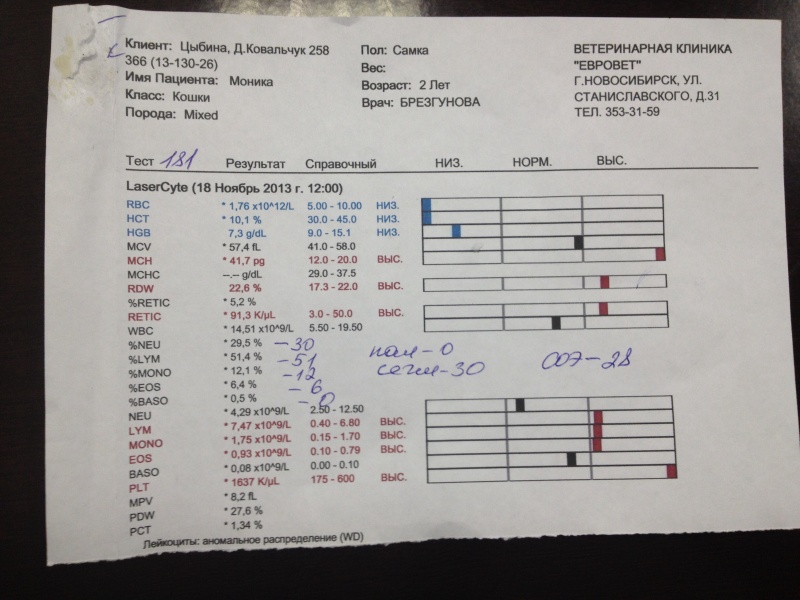 Клиент: Цыбина, Д.Ковальчук 258
366 (13-130-26)
Имя Пациента: Моника
Класс: Кошки
Порода: Mixed
Пол: Самка
Вес:
Возраст: 2 Лет
Врач: БРЕЗГУНОВА
ВЕТЕРИНАРНАЯ КЛИНИКА
"ЕВРОВЕТ"
Г.НОВОСИБИРСК, УЛ.
СТАНИСЛАВСКОГО, Д.31
ТЕЛ. 353-31-59
Тест 181 Результат Справочный НИЗ. НОРМ. ВЫС.
LaserCyte (18 Ноябрь 2013 г. 12:00)
RBC * 1,76 x10^12/L 5.00 - 10.00 НИЗ.
HCT * 10,1 % 30.0 - 45.0 НИЗ.
HGB 7,3 g/dL 9.0 - 15.1 НИЗ.
MCV * 57,4 fL 41.0 - 58.0
MCH * 41,7 pg 12.0 - 20.0 ВЫС.
MCHC --.-- g/dL 29.0 - 37.5
RDW 22,6 % 17.3 - 22.0 ВЫС.
%RETIC * 5,2 %
RETIC * 91,3 K/µL 3.0 - 50.0 ВЫС.
WBC * 14,51 x10^9/L 5.50 - 19.50
%NEU * 29,5 % - 30 пал - 0 СОЭ - 28
%LYM * 51,4 % - 51 сегм - 30
%MONO * 12,1 % - 12
%EOS * 6,4 % - 6
%BASO * 0,5 % - 0
NEU * 4,29 x10^9/L 2.50 - 12.50
LYM * 7,47 x10^9/L 0.40 - 6.80 ВЫС.
MONO * 1,75 x10^9/L 0.15 - 1.70 ВЫС.
EOS * 0,93 x10^9/L 0.10 - 0.79 ВЫС.
BASO * 0,08 x10^9/L 0.00 - 0.10
PLT * 1637 K/µL 175 - 600 ВЫС.
MPV * 8,2 fL
PDW * 27,6 %
PCT * 1,34 %
Лейкоциты: аномальное распределение (WD)